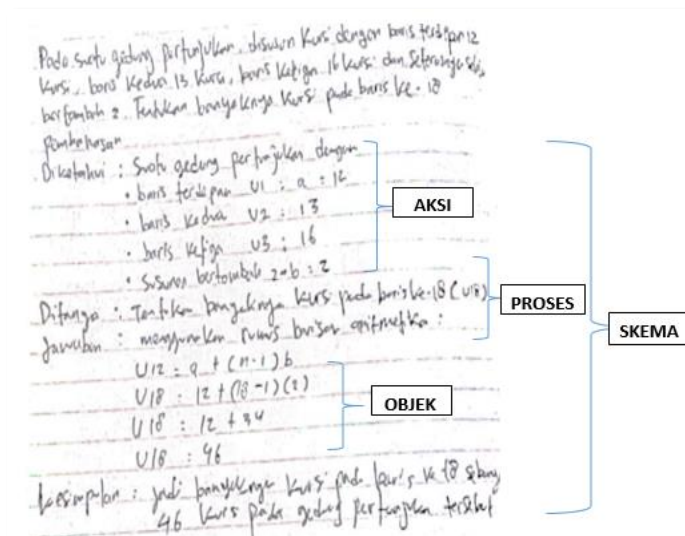 Pada suatu gedung pertunjukan, disusun kursi dengan baris terdepan 12
kursi, baris kedua 13 kursi, baris ketiga 16 kursi dan seterusnya selalu
bertambah 2. Tentukan banyaknya kursi pada baris ke-18
pembahasan
Diketahui : Suatu gedung pertunjukan dengan
• baris terdepan U1 : a = 12
• baris kedua U2 : 13
• baris ketiga U3 : 16
• susunan bertambah 2 = b : 2
AKSI
Ditanya : Tentukan banyaknya kursi pada baris ke-18 (U18)
Jawaban : menggunakan rumus barisan aritmetika :
PROSES
SKEMA
U12 : a + (n-1) b
U18 : 12 + (18-1)(2)
U18 : 12 + 34
U18 : 46
OBJEK
kesimpulan : jadi banyaknya kursi pada baris ke 18
46 kursi pada gedung pertunjukan tersebut